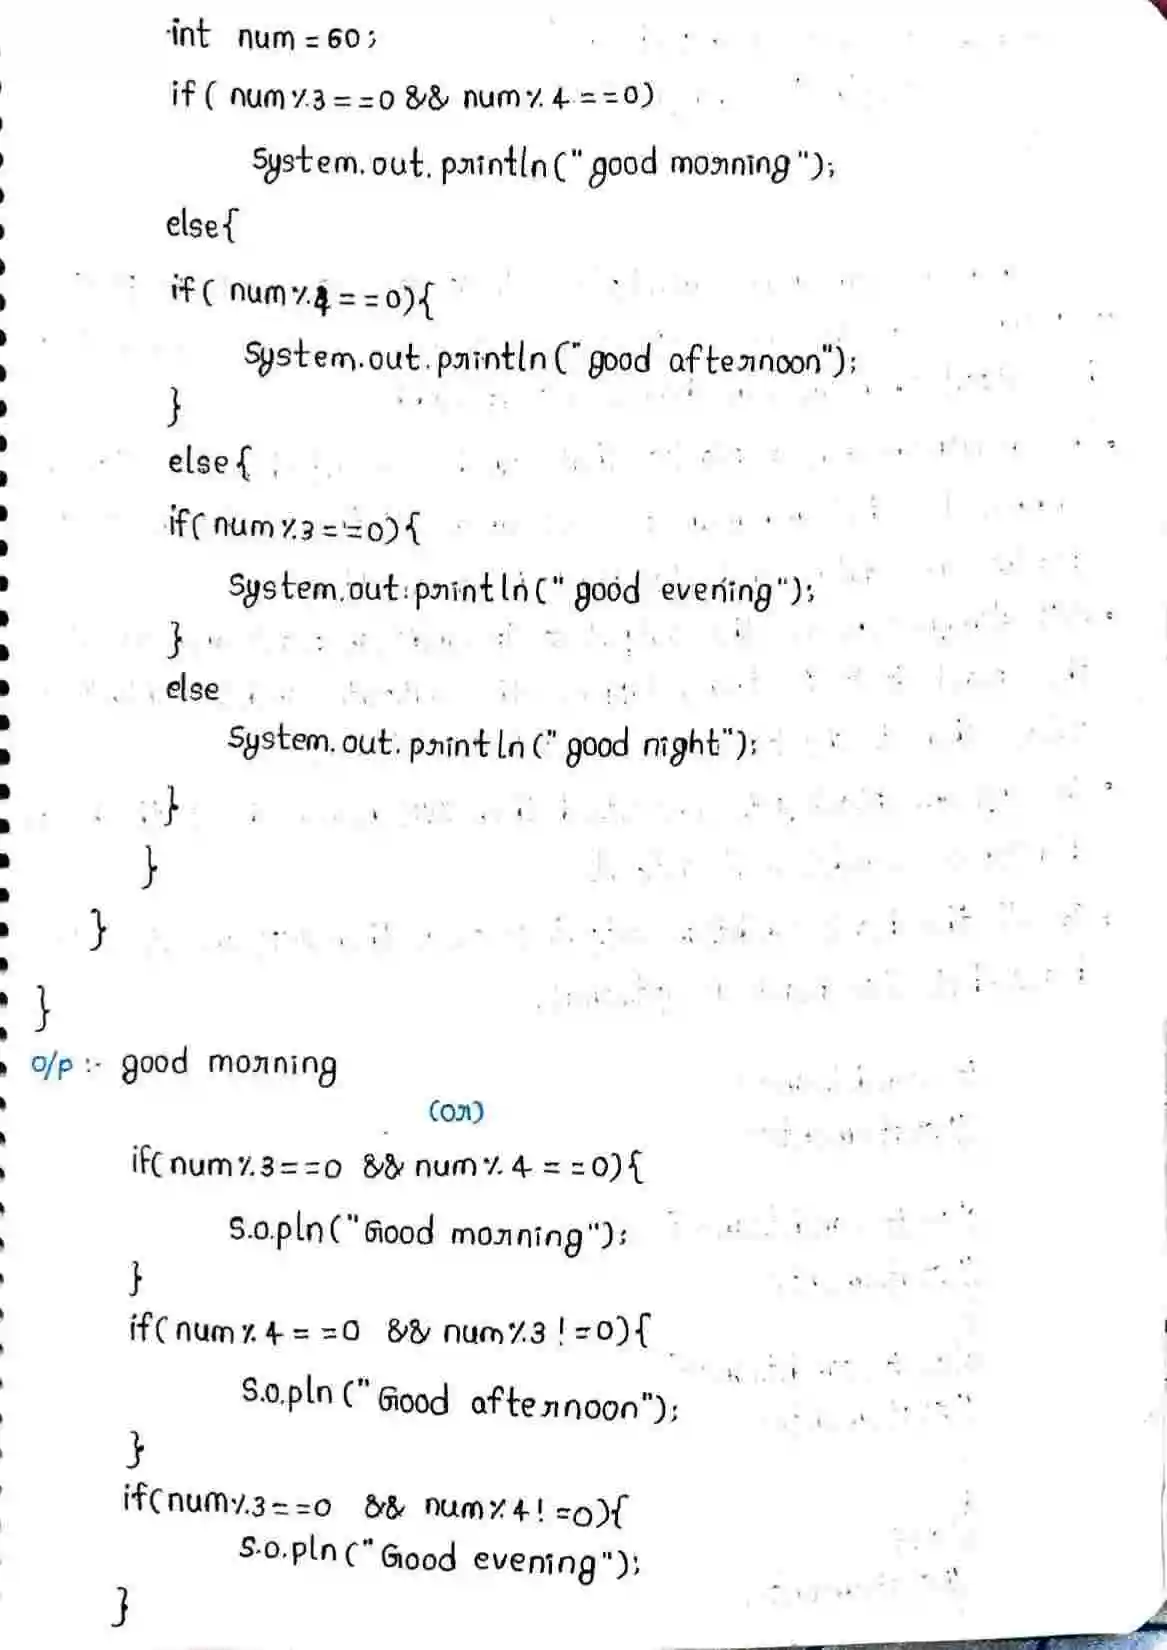 int num = 60;
if( num%3==0 && num%4==0)
System.out.println("good morning");
else{
if( num%4==0){
System.out.println("good afternoon");
}
else{
if(num%3==0){
System.out.println("good evening");
}
else
System.out.println("good night");
}
}
}
}
o/p :- good morning
(or)
if(num%3==0 && num%4==0){
S.o.pln("Good morning");
}
if(num%4==0 && num%3!=0){
S.o.pln("Good afternoon");
}
if(num%3==0 && num%4!=0){
S.o.pln("Good evening");
}